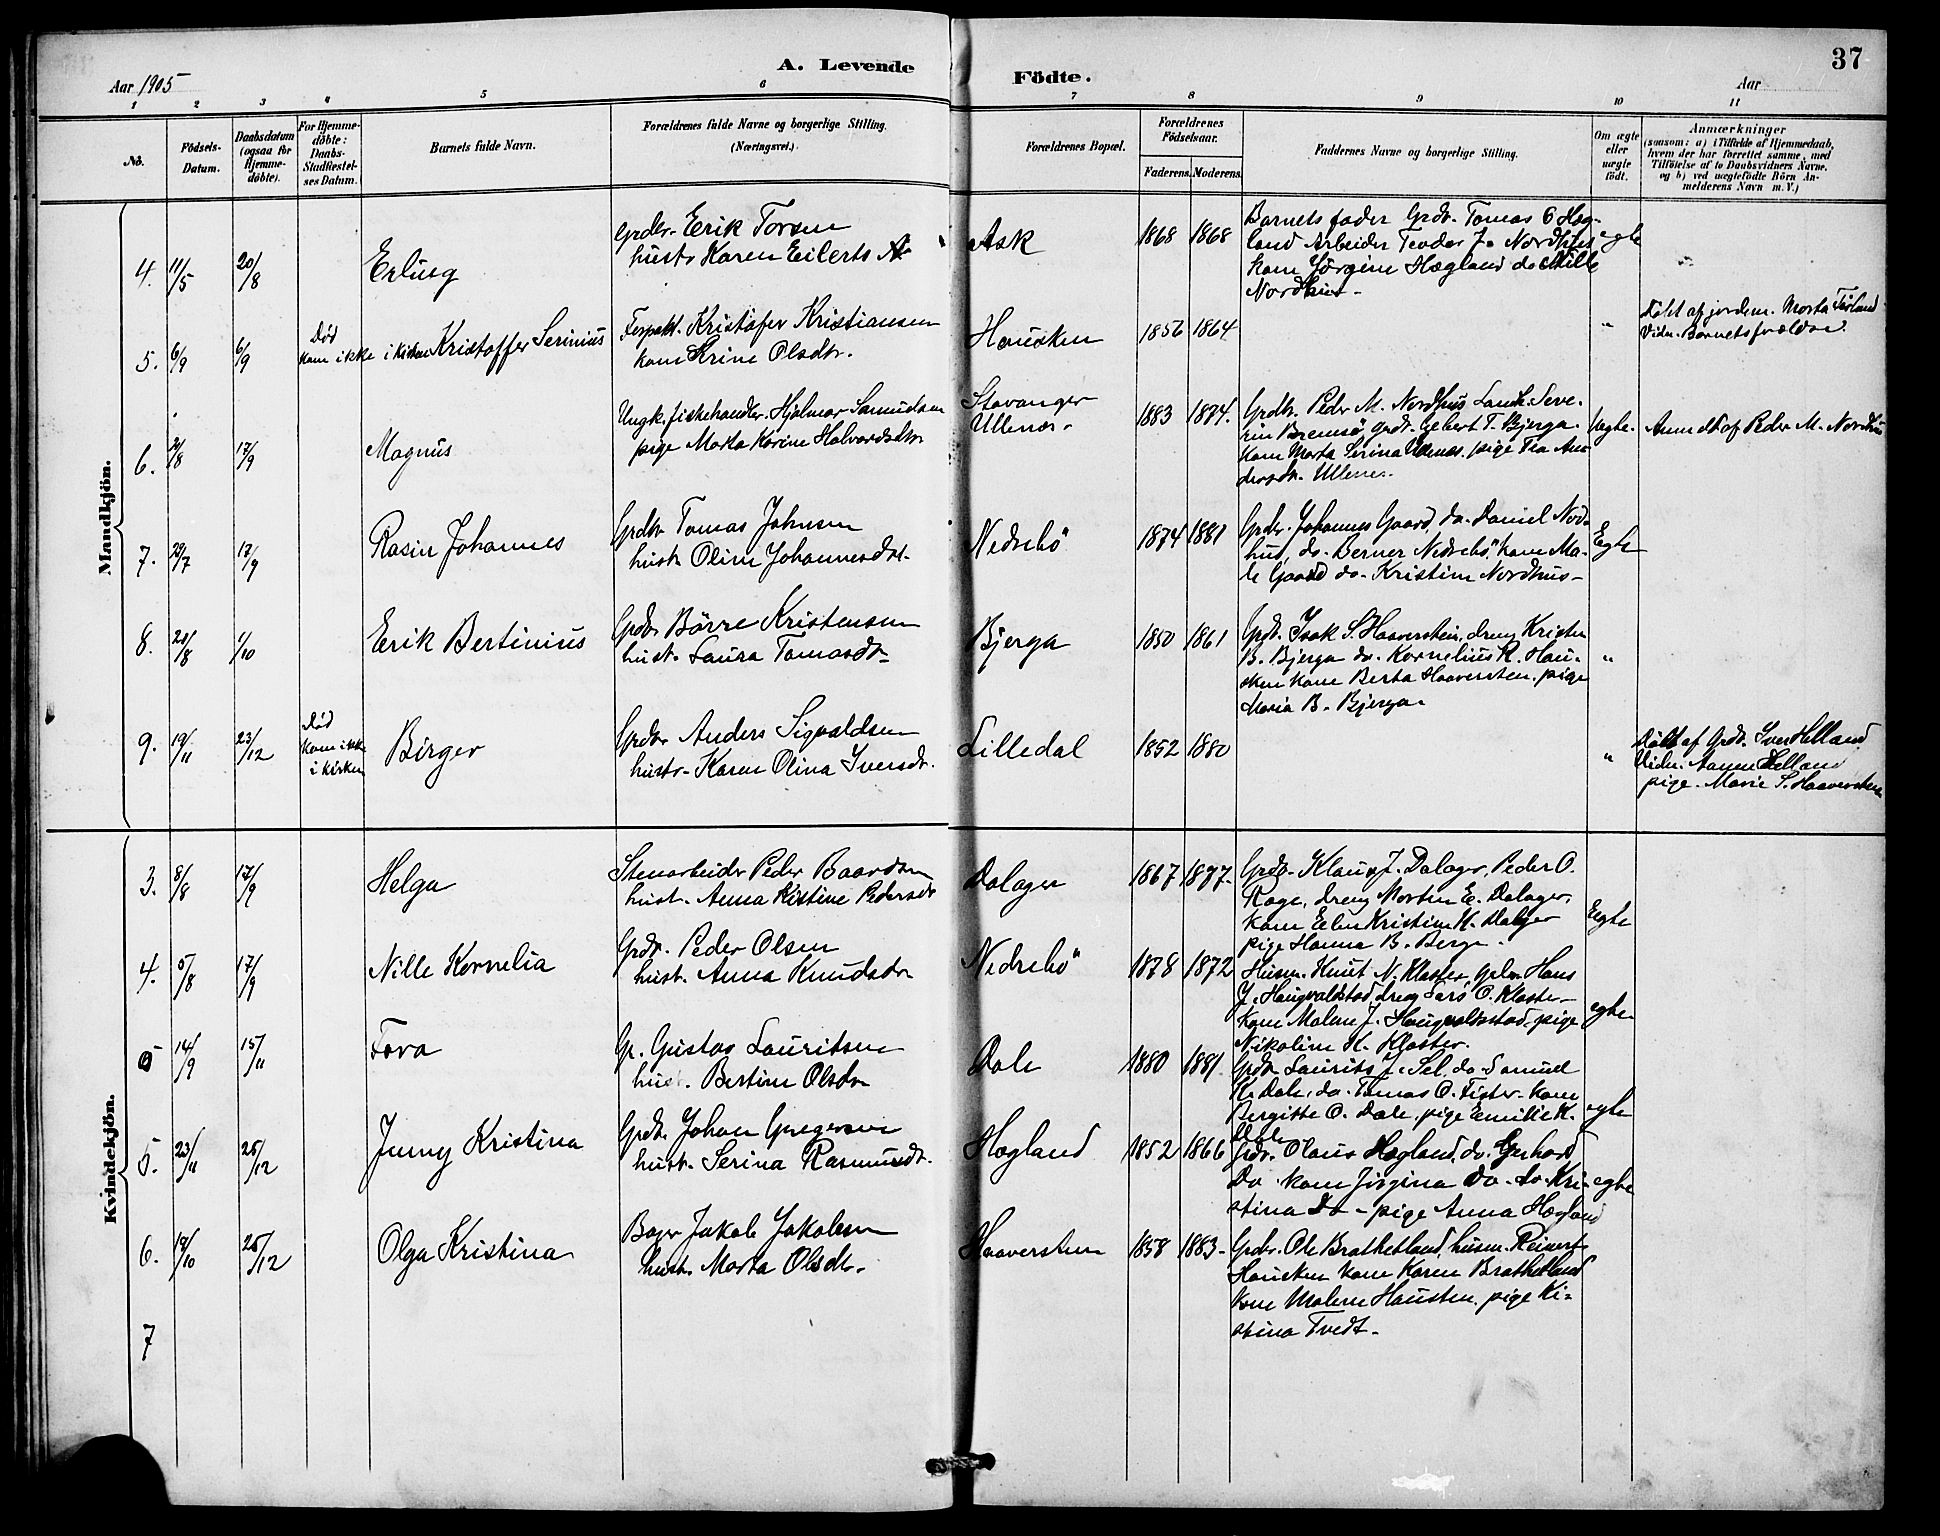 37
Aar 1905
A. Levende
Födte.
Aar
1 2 3 4 5 6 7 8 9 10 11
No.
Födsels-
Datum.
Daabsdatum
(ogsaa for
Hjemme-
döbte).
For Hjemme-
döbte:
Daabs-
Stadfæstel-
ses Datum.
Barnets fulde Navn.
Forældrenes fulde Navne og borgerlige Stilling.
(Næringsvei.)
Forældrenes Bopæl.
Forældrenes
Födselsaar.
Faderens. Moderens.
Faddernes Navne og borgerlige Stilling.
Om ægte
eller
uægte
födt.
Anmærkninger
(saasom: a) i Tilfælde af Hjemmedaab,
hvem der har forrettet samme, med
Tilföielse af to Daabsvidners Navne.
og b) ved uægtefödte Börn An-
melderens Navn m. V.)
Mandkjön.
4. 11/5 20/8
Erling
Grdbr. Eerik Torsen
hustr Karen Eilerts
Ask
1868 1868
Barnets fader Grdbr. Tomas O Hæg-
land Arbeider Teodor J. Nordhus
kone Jörgine Hægland do Mille
Nordhus -
egte
5. 6/9 6/9
Död
kom ikke i kirken
Kristoffer Serinius
Kristofer Kristiansen
kone Olsdtr.
Hausken
1856 1864
"
Döbt af jordem. Marta
Vidn. Barnets forældre
6. 17/9
Magnus
Ungk. fiskehandler. Hjalmar Samuelsen
pige Marta Karine Halvardsdtr
Stavanger
Ullenes.
1883 1874.
Grdbr. Peder M. Nordhus Seve-
rin Bremsö grdbr. Gebert T. Bjerga.
kone Marta Serina pige An-
dersdtr. Ullenes.
Uegte.
Anmeldt af Peder M. Nordhus
7. 29/7 17/9
Rasin Johannes
Grdbr Tomas Johnsen
hustr Oline Johannesdtr.
Nedrebö
1874 1881
Grdbr. Johannes Gaard, do. Daniel Nord-
hus, do. Berner Nedrebö, kone Ma-
le Gaard do. Kristine Nordhus -
Eegte
8. 20/8 1/10
Eerik Bertinius
Grdbr Börre Kristensen
hust. Laura Tomasdtr
Bjerga
1850 1861
Grdbr. Isak S. Haaverstein, dreng Kristen
B. Bjerga do. Kornelius R. Hau-
sken kone Berta Haaversten. pige
Maria B. Bjerga.
"
9. 19/11 23/12
Död
kom ikke
i kirken
Birger
Grdbr Anders Sigvaldsen
hustr. Karen Olina Iversdtr.
Lilledal
1852 1880
"
Döbt af Grdbr. Iver Helland
Vidn. Helland
pige. Marie S. Haaversten
Kvindekjön.
3. 8/8 17/9
Helga
Stenarbeider Peder Baardsen
hust. Anna Kistine Pedersdtr
Dalager
1867 1877.
Grdbr. Klaus J. Dalager, Peder O.
Rage, dreng Morten E. Dalager,
kone Kristine H. Dalager
pige Hanna B. Berge.
Eegte
4. 5/8 17/9
Nille Kornelia
Grdbr. Peder Olsen
hust. Anna Knudsdtr
Nedrebö
1878 1872
Husm. Knut N. Kloster, Hans
J. Haugvaldstad, dreng Lars O. Kloster
kone Malene J. Haugvaldstad, pige
Nikoline K. Kloster.
egte
5 14/9 15/11
Tora
Gr. Gustav Lauritsen
hust. Bertine Olsdtr
Dale
1880 1881.
Grdbr Laurits J. Sel, do Samuel
K. Dale, do. Tomas O. Fister. kone
Bergitte O. Dale, pige Emilie K.
Dale
egte
5. 23/11 25/12
Jenny Kristina
Grdbr. Johan Gregersen
hust. Serina Rasmusdtr.
Hægland
1852 1866
Grdbr. Olaus Hægland, do. Gerhard
Do kone Jörgina Do. do. Kri-
stina Do - pige Anna Hægland
egte
6. 18/10 25/12
Olga Kristina
Bager Jakob Jakobsen
hust. Marta Olsdtr.
Haaversten
1858 1883-
Grdbr. Ole Brathetland, husm. Reinert
Hausken kone Karen Brathetland
kone Malene Hausken, pige Ki-
stina Tvedt.
7